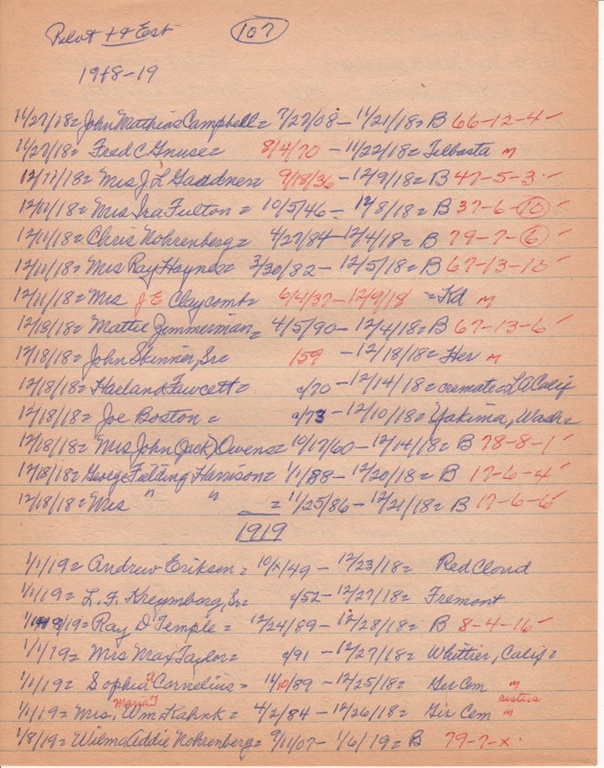 Pilot + & Est 107
1918-19
11/27/18= John Mathias Campbell= 7/27/08 - 11/21/18= B 66-12-4-
11/27/18= Fred C Gnuse= 8/4/70 - 11/22/18= m
12/11/18= Mrs J L Gaddner= 9/18/36 - 12/9/18= B 47-5-3-
12/11/18= Mrs Ira Fulton = 10/5/46 - 12/8/18= B 37-6-10
12/11/18= Chris Nohrenberg= 4/27/84 - 12/4/18= B 79-7-6-
12/11/18= Mrs Ray Haynes= 3/30/82 - 12/5/18= B 67-13-15
12/11/18= Mrs J E Claycomb= 6/4/37 - 12/9/18 = Kd m
12/18/18= Mattie Zimmerman= 4/5/90 - 12/4/18= B 67-13-6-
12/18/18= John Skinner, Sr= 159 - 12/18/18= Her m
12/18/18= Harland Fawcett= c/70 - 12/14/18= cremate= LA Calif
12/18/18= Joe Boston = c/73 - 12/10/18= Yakima, Wash=
12/18/18= Mrs John (Jack) Owens= 10/17/60 - 12/14/18= B 78-8-1-
12/18/18= George Fielding Harrison= 1/1/88 - 12/20/18= B 17-6-4-
12/18/18= Mrs " " = 11/25/86 - 12/21/18= B 17-6-6-
1919
1/1/19= Andrew Eriksen= 10/x/49 - 12/23/18= Red Cloud
1/1/19= L. F. Kreymborg, Sr= c/52 - 12/27/18= Fremont
1/1/19= Ray D Temple = 12/24/89 - 12/28/18= B 8-4-16-
1/1/19= Mrs Max Taylor= c/91 - 12/27/18= Whittier, Calif=
1/1/19= Sophia C Cornelius= 11/10/89 - 12/25/18= Ger Cem m
1/1/19= Mrs. Maria T Wm Kahnk= 4/2/84 - 12/26/18= Gir Cem sisters m
1/8/19= Wilma Addie Nohrenberg= 9/11/07 - 1/6/19= B 79-7-x-